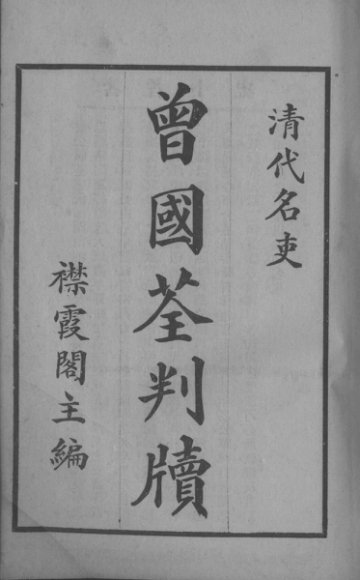 清代名吏
曾國荃判牘
襟霞閣主編